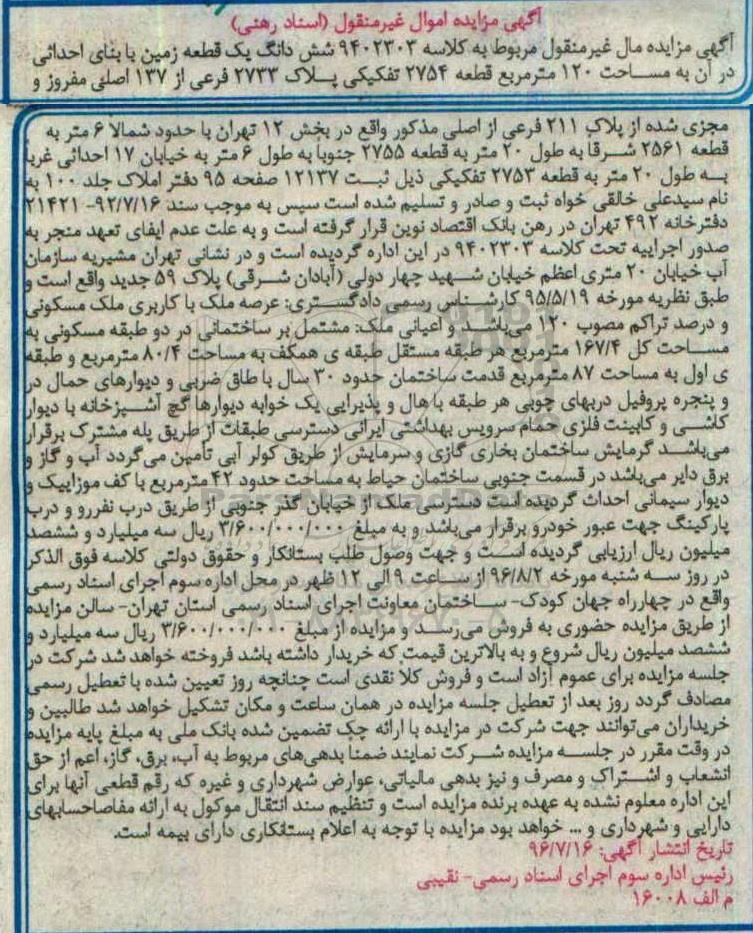 آگهی مزایده اموال غیرمنقول (اسناد رهنی)
آگهی مزایده مال غیرمنقول مربوط به کلاسه ۹۴۰۲۳۰۳ شش دانگ یک قطعه زمین با بنای احداثی
در آن به مساحت ۱۲۰ مترمربع قطعه ۲۷۵۴ تفکیکی پلاک ۲۷۳۳ فرعی از ۱۳۷ اصلی مفروز و
مجزی شده از پلاک ۲۱۱ فرعی از اصلی مذکور واقع در بخش ۱۲ تهران با حدود شمالا ۶ متر به
قطعه ۲۵۶۱ شرقا به طول ۲۰ متر به قطعه ۲۷۵۵ جنوبا به طول ۶ متر به خیابان ۱۷ احداثی غربا
به طول ۲۰ متر به قطعه ۲۷۵۳ تفکیکی ذیل ثبت ۱۲۱۳۷ صفحه ۹۵ دفتر املاک جلد ۱۰۰ به
نام سیدعلی خالقی خواه ثبت و صادر و تسلیم شده است سپس به موجب سند ۹۲/۷/۱۶- ۲۱۴۲۱
دفترخانه ۴۹۲ تهران در رهن بانک اقتصاد نوین قرار گرفته است و به علت عدم ایفای تعهد منجر به
صدور اجراییه تحت کلاسه ۹۴۰۲۳۰۳ در این اداره گردیده است و در نشانی تهران مشیریه سازمان
آب خیابان ۲۰ متری اعظم خیابان شهید چهار دولی (آبادان شرقی) پلاک ۵۹ جدید واقع است و
طبق نظریه مورخه ۹۵/۵/۱۹ کارشناس رسمی دادگستری: عرصه ملک با کاربری ملک مسکونی
و درصد تراکم مصوب ۱۲۰ می‌باشد و اعیانی ملک: مشتمل بر ساختمانی در دو طبقه مسکونی به
مساحت کل ۱۶۷/۴ مترمربع هر طبقه مستقل طبقه ی همکف به مساحت ۸۰/۴ مترمربع و طبقه
ی اول به مساحت ۸۷ مترمربع قدمت ساختمان حدود ۳۰ سال با طاق ضربی و دیوارهای حمال در
و پنجره پروفیل دربهای چوبی هر طبقه با هال و پذیرایی یک خوابه دیوارها گچ آشپزخانه با دیوار
کاشی و کابینت فلزی حمام سرویس بهداشتی ایرانی دسترسی طبقات از طریق پله مشترک برقرار
می‌باشد گرمایش ساختمان بخاری گازی و سرمایش از طریق کولر آبی تأمین می‌گردد آب و گاز و
برق دایر می‌باشد در قسمت جنوبی ساختمان حیاط به مساحت حدود ۴۲ مترمربع با کف موزاییک و
دیوار سیمانی احداث گردیده است دسترسی ملک از خیابان گذر جنوبی از طریق درب نفررو و درب
پارکینگ جهت عبور خودرو برقرار می‌باشد و به مبلغ ۳/۶۰۰/۰۰۰/۰۰۰ ریال سه میلیارد و ششصد
میلیون ریال ارزیابی گردیده است و جهت وصول طلب بستانکار و حقوق دولتی کلاسه فوق الذکر
در روز سه شنبه مورخه ۹۶/۸/۲ از ساعت ۹ الی ۱۲ ظهر در محل اداره سوم اجرای اسناد رسمی
واقع در چهارراه جهان کودک- ساختمان معاونت اجرای اسناد رسمی استان تهران- سالن مزایده
از طریق مزایده حضوری به فروش می‌رسد و مزایده از مبلغ ۳/۶۰۰/۰۰۰/۰۰۰ ریال سه میلیارد و
ششصد میلیون ریال شروع و به بالاترین قیمت که خریدار داشته باشد فروخته خواهد شد شرکت در
جلسه مزایده برای عموم آزاد است و فروش کلا نقدی است چنانچه روز تعیین شده با تعطیل رسمی
مصادف گردد روز بعد از تعطیل جلسه مزایده در همان ساعت و مکان تشکیل خواهد شد طالبین و
خریداران می‌توانند جهت شرکت در مزایده با ارائه چک تضمین شده بانک ملی به مبلغ پایه مزایده
در وقت مقرر در جلسه مزایده شرکت نمایند ضمنا بدهی‌های مربوط به آب، برق، گاز، اعم از حق
انشعاب و اشتراک و مصرف و نیز بدهی مالیاتی، عوارض شهرداری و غیره که رقم قطعی آنها برای
این اداره معلوم نشده به عهده برنده مزایده است و تنظیم سند انتقال موکول به ارائه مفاصاحسابهای
دارایی و شهرداری و ... خواهد بود مزایده با توجه به اعلام بستانکاری دارای بیمه است.
تاریخ انتشار آگهی: ۹۶/۷/۱۶
رئیس اداره سوم اجرای اسناد رسمی- نقیبی
م الف ۱۶۰۰۸